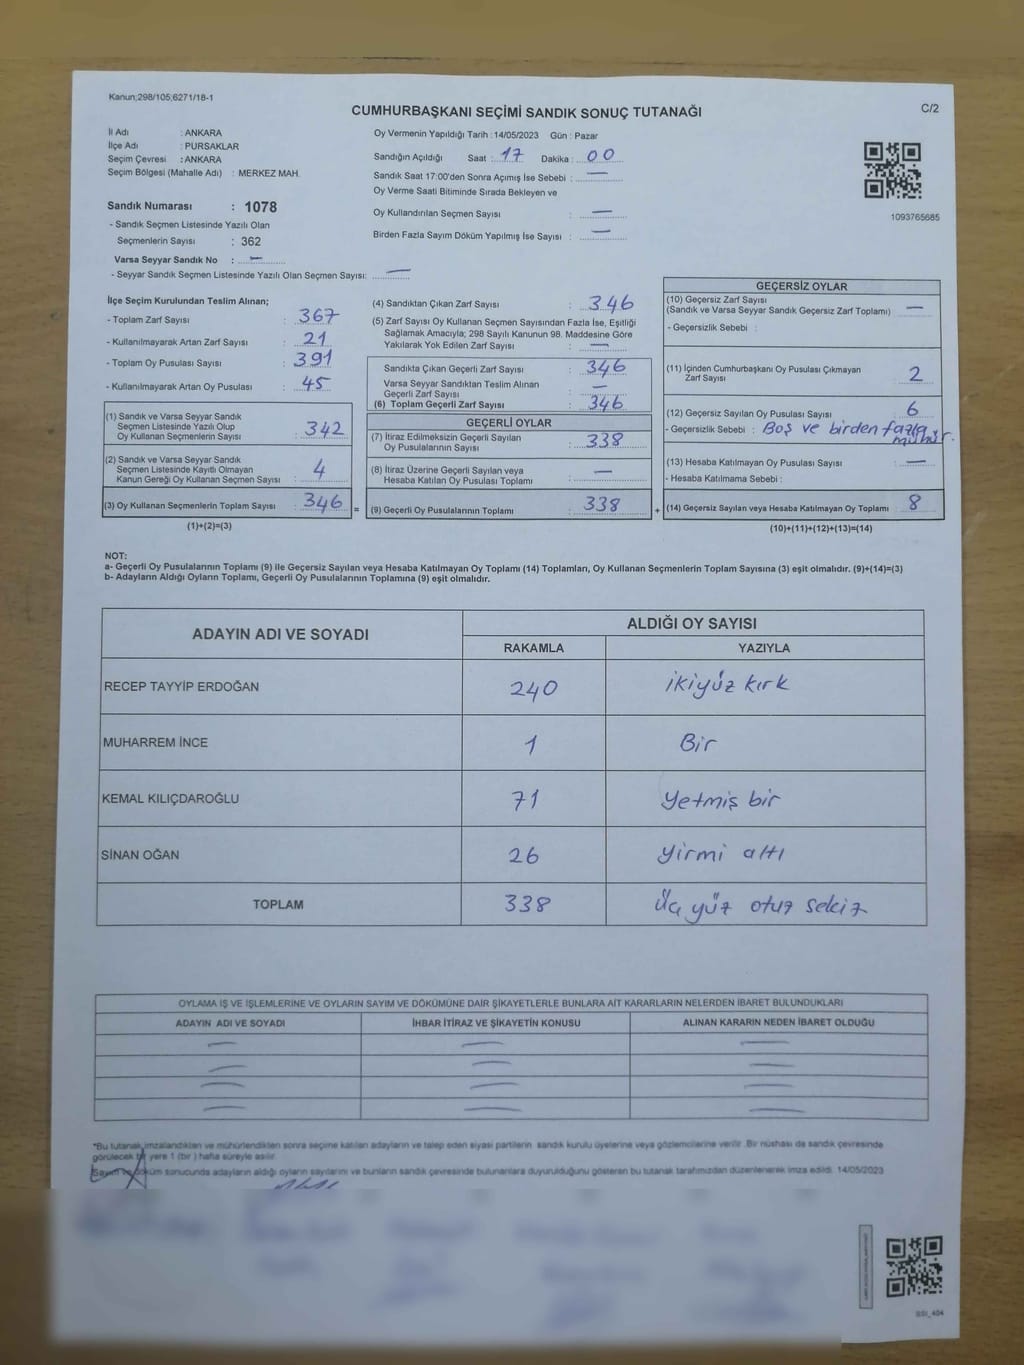 Kanun;298/105;6271/18-1
CUMHURBAŞKANI SEÇİMİ SANDIK SONUÇ TUTANAĞI
C/2
İl Adı : ANKARA
İlçe Adı : PURSAKLAR
Seçim Çevresi : ANKARA
Seçim Bölgesi (Mahalle Adı) : MERKEZ MAH.
Sandık Numarası : 1078
- Sandık Seçmen Listesinde Yazılı Olan
Seçmenlerin Sayısı : 362
Varsa Seyyar Sandık No : —
- Seyyar Sandık Seçmen Listesinde Yazılı Olan Seçmen Sayısı: —
Oy Vermenin Yapıldığı Tarih : 14/05/2023 Gün : Pazar
Sandığın Açıldığı Saat : 17 Dakika : 00
Sandık Saat 17:00'den Sonra Açımış İse Sebebi : —
Oy Verme Saati Bitiminde Sırada Bekleyen ve
Oy Kullandırılan Seçmen Sayısı : —
Birden Fazla Sayım Döküm Yapılmış İse Sayısı : —
1093765685
İlçe Seçim Kurulundan Teslim Alınan;
- Toplam Zarf Sayısı : 367
- Kullanılmayarak Artan Zarf Sayısı : 21
- Toplam Oy Pusulası Sayısı : 391
- Kullanılmayarak Artan Oy Pusulası : 45
(1) Sandık ve Varsa Seyyar Sandık
Seçmen Listesinde Yazılı Olup
Oy Kullanan Seçmenlerin Sayısı : 342
(2) Sandık ve Varsa Seyyar Sandık
Seçmen Listesinde Kayıtlı Olmayan
Kanun Gereği Oy Kullanan Seçmen Sayısı : 4
(3) Oy Kullanan Seçmenlerin Toplam Sayısı : 346 =
(1)+(2)=(3)
(4) Sandıktan Çıkan Zarf Sayısı : 346
(5) Zarf Sayısı Oy Kullanan Seçmen Sayısından Fazla İse, Eşitliği
Sağlamak Amacıyla; 298 Sayılı Kanunun 98. Maddesine Göre
Yakılarak Yok Edilen Zarf Sayısı : —
Sandıkta Çıkan Geçerli Zarf Sayısı : 346
Varsa Seyyar Sandıktan Teslim Alınan
Geçerli Zarf Sayısı : —
(6) Toplam Geçerli Zarf Sayısı : 346
GEÇERLİ OYLAR
(7) İtiraz Edilmeksizin Geçerli Sayılan
Oy Pusulalarının Toplamı : 338
(8) İtiraz Üzerine Geçerli Sayılan veya
Hesaba Katılan Oy Pusulası Toplamı : —
(9) Geçerli Oy Pusulalarının Toplamı : 338 +
GEÇERSİZ OYLAR
(10) Geçersiz Zarf Sayısı
(Sandık ve Varsa Seyyar Sandık Geçersiz Zarf Toplamı) —
- Geçersizlik Sebebi :
(11) İçinden Cumhurbaşkanı Oy Pusulası Çıkmayan
Zarf Sayısı 2
(12) Geçersiz Sayılan Oy Pusulası Sayısı 6
- Geçersizlik Sebebi : Boş ve birden fazla
mühür.
(13) Hesaba Katılmayan Oy Pusulası Sayısı —
- Hesaba Katılmama Sebebi :
(14) Geçersiz Sayılan veya Hesaba Katılmayan Oy Toplamı 8
(10)+(11)+(12)+(13)=(14)
NOT:
a- Geçerli Oy Pusulalarının Toplamı (9) ile Geçersiz Sayılan veya Hesaba Katılmayan Oy Toplamı (14) Toplamları, Oy Kullanan Seçmenlerin Toplam Sayısına (3) eşit olmalıdır. (9)+(14)=(3)
b- Adayların Aldığı Oyların Toplamı, Geçerli Oy Pusulalarının Toplamına (9) eşit olmalıdır.
ADAYIN ADI VE SOYADI
ALDIĞI OY SAYISI
RAKAMLA YAZIYLA
RECEP TAYYİP ERDOĞAN 240 ikiyüz kırk
MUHARREM İNCE 1 Bir
KEMAL KILIÇDAROĞLU 71 Yetmiş bir
SİNAN OĞAN 26 Yirmi altı
TOPLAM 338 Üç yüz otuz sekiz
OYLAMA İŞ VE İŞLEMLERİNE VE OYLARIN SAYIM VE DÖKÜMÜNE DAİR ŞİKAYETLERLE BUNLARA AİT KARARLARIN NELERDEN İBARET BULUNDUKLARI
ADAYIN ADI VE SOYADI İHBAR İTİRAZ VE ŞİKAYETİN KONUSU ALINAN KARARIN NEDEN İBARET OLDUĞU
— — —
— — —
— — —
— — —
*Bu tutanak,imzalandıktan ve mühürlendikten sonra seçime katılan adayların ve talep eden siyasi partilerin sandık kurulu üyelerine veya gözlemcilerine verilir. Bir nüshası da sandık çevresinde
görülecek bir yere 1 (bir ) hafta süreyle asılır.
Sayım ve döküm sonucunda adayların aldığı oyların sayılarını ve bunların sandık çevresinde bulunanlara duyurulduğunu gösteren bu tutanak tarafımızdan düzenlenerek imza edildi. 14/05/2023